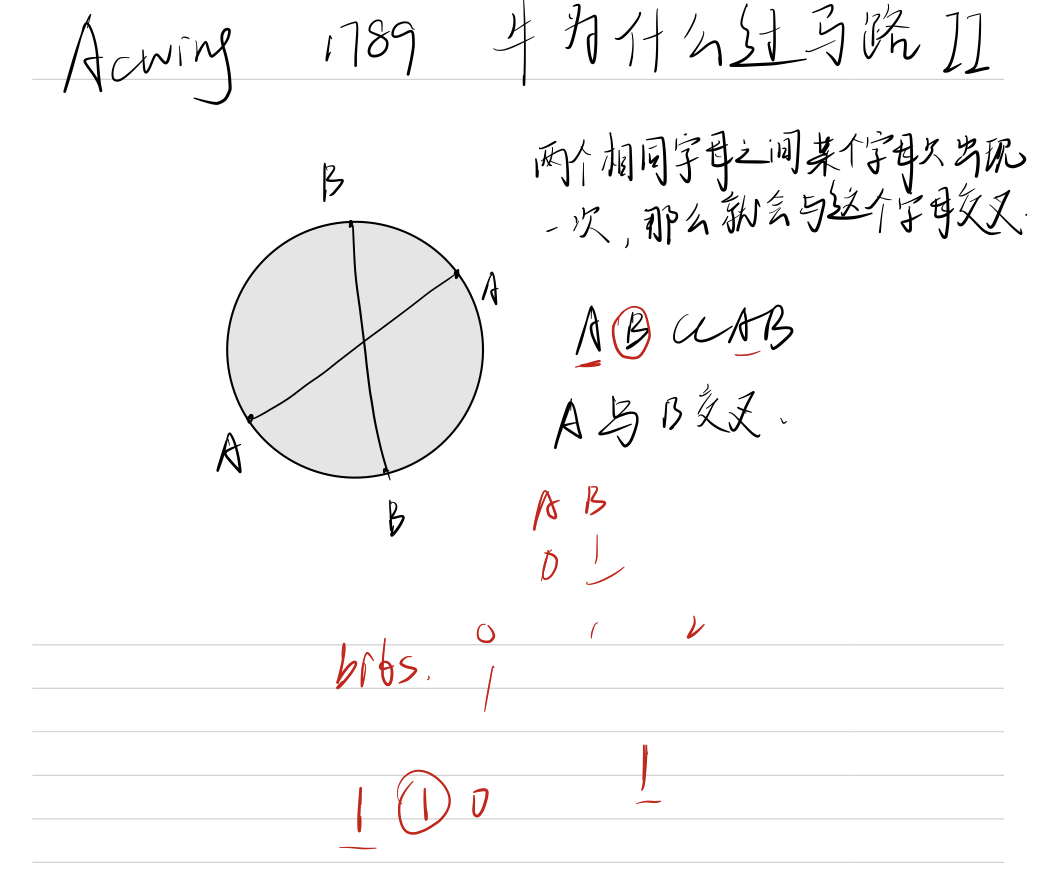 Acwing 1789 牛为什么过马路 II
B
两个相同字母之间某个字母只出现
一次，那么就会与这个字母交叉.
A
A B CC A B
A 与 B 交叉.
A
B
A B
0 1
0 1 2
bits.
1
1
1 1 0